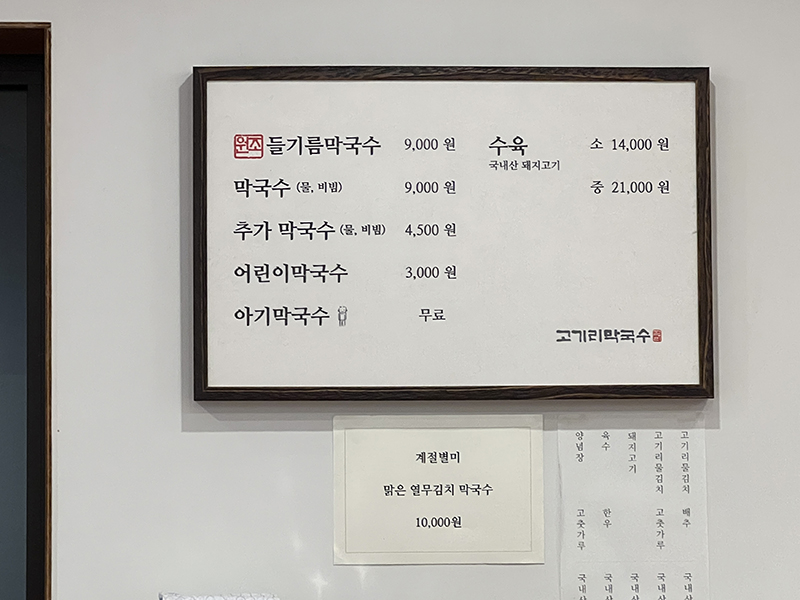 원조 들기름막국수 9,000 원
막국수 (물, 비빔) 9,000 원
추가 막국수 (물, 비빔) 4,500 원
어린이막국수 3,000 원
아기막국수 무료
수육 소 14,000 원
국내산 돼지고기
중 21,000 원
고기리막국수
계절별미
맑은 열무김치 막국수
10,000원
고기리물김치 배추 국내산
고기리물김치 고춧가루 국내산
돼지고기 국내산
육수 한우 국내산
양념장 고춧가루 국내산